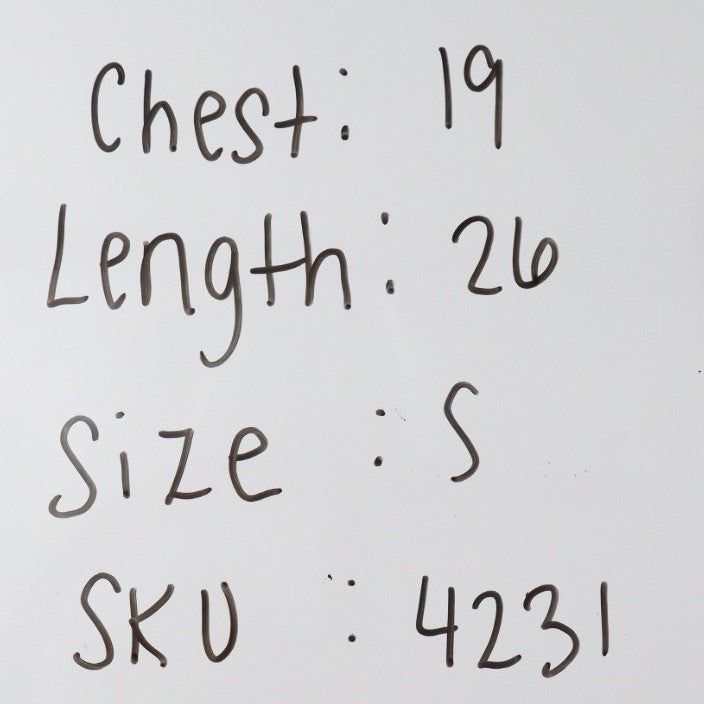 Chest: 19
Length: 26
Size : S
SKU : 4231